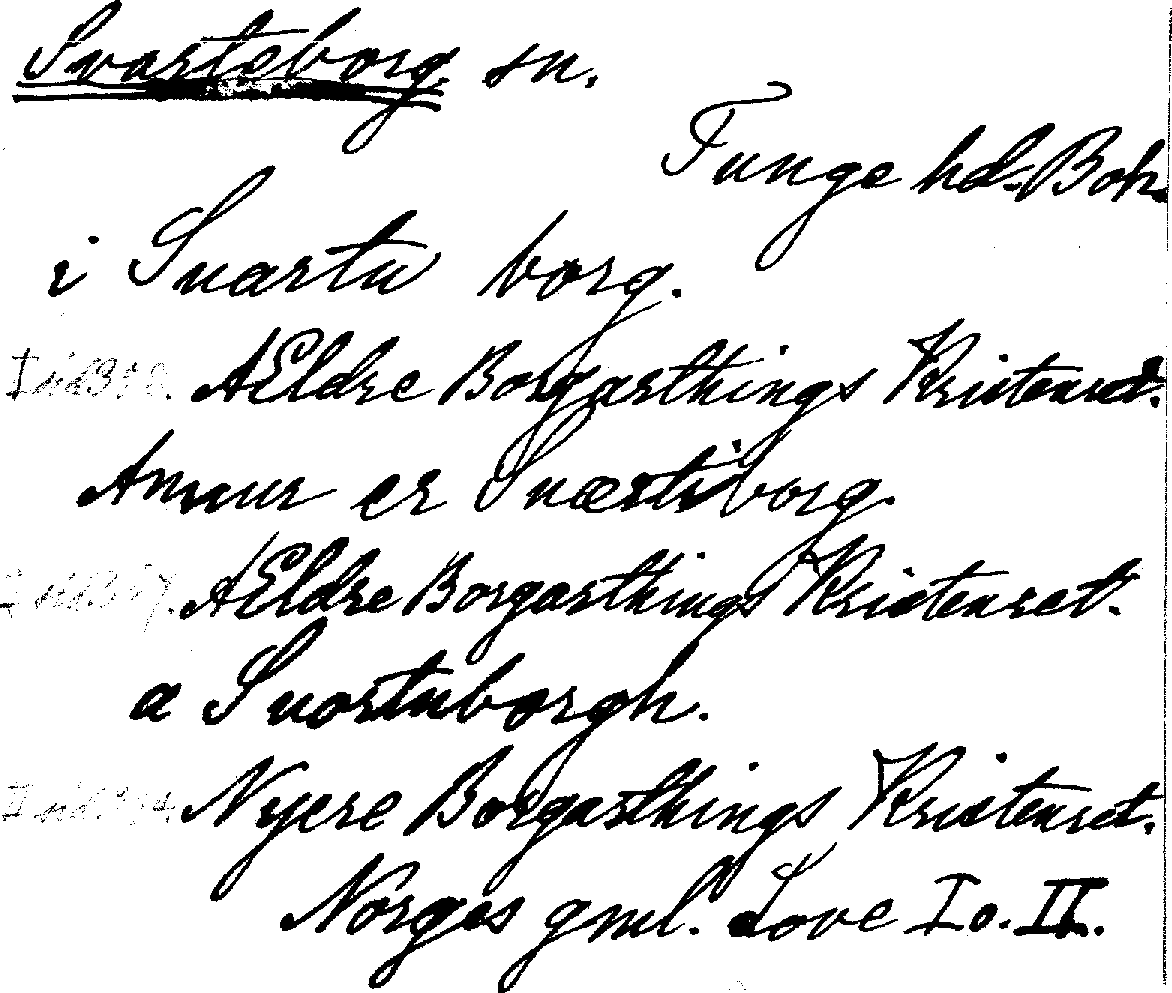 Svarteborg sn.
Tunge hd. Boh.
i Suartu borg.
Ældre Borgarthings Kristenret.
Annur er Suærtiborg.
Ældre Borgarthings Kristenret.
a Suortuborgh.
Nyere Borgarthings Kristenret.
Norges gml. Love I o. II.